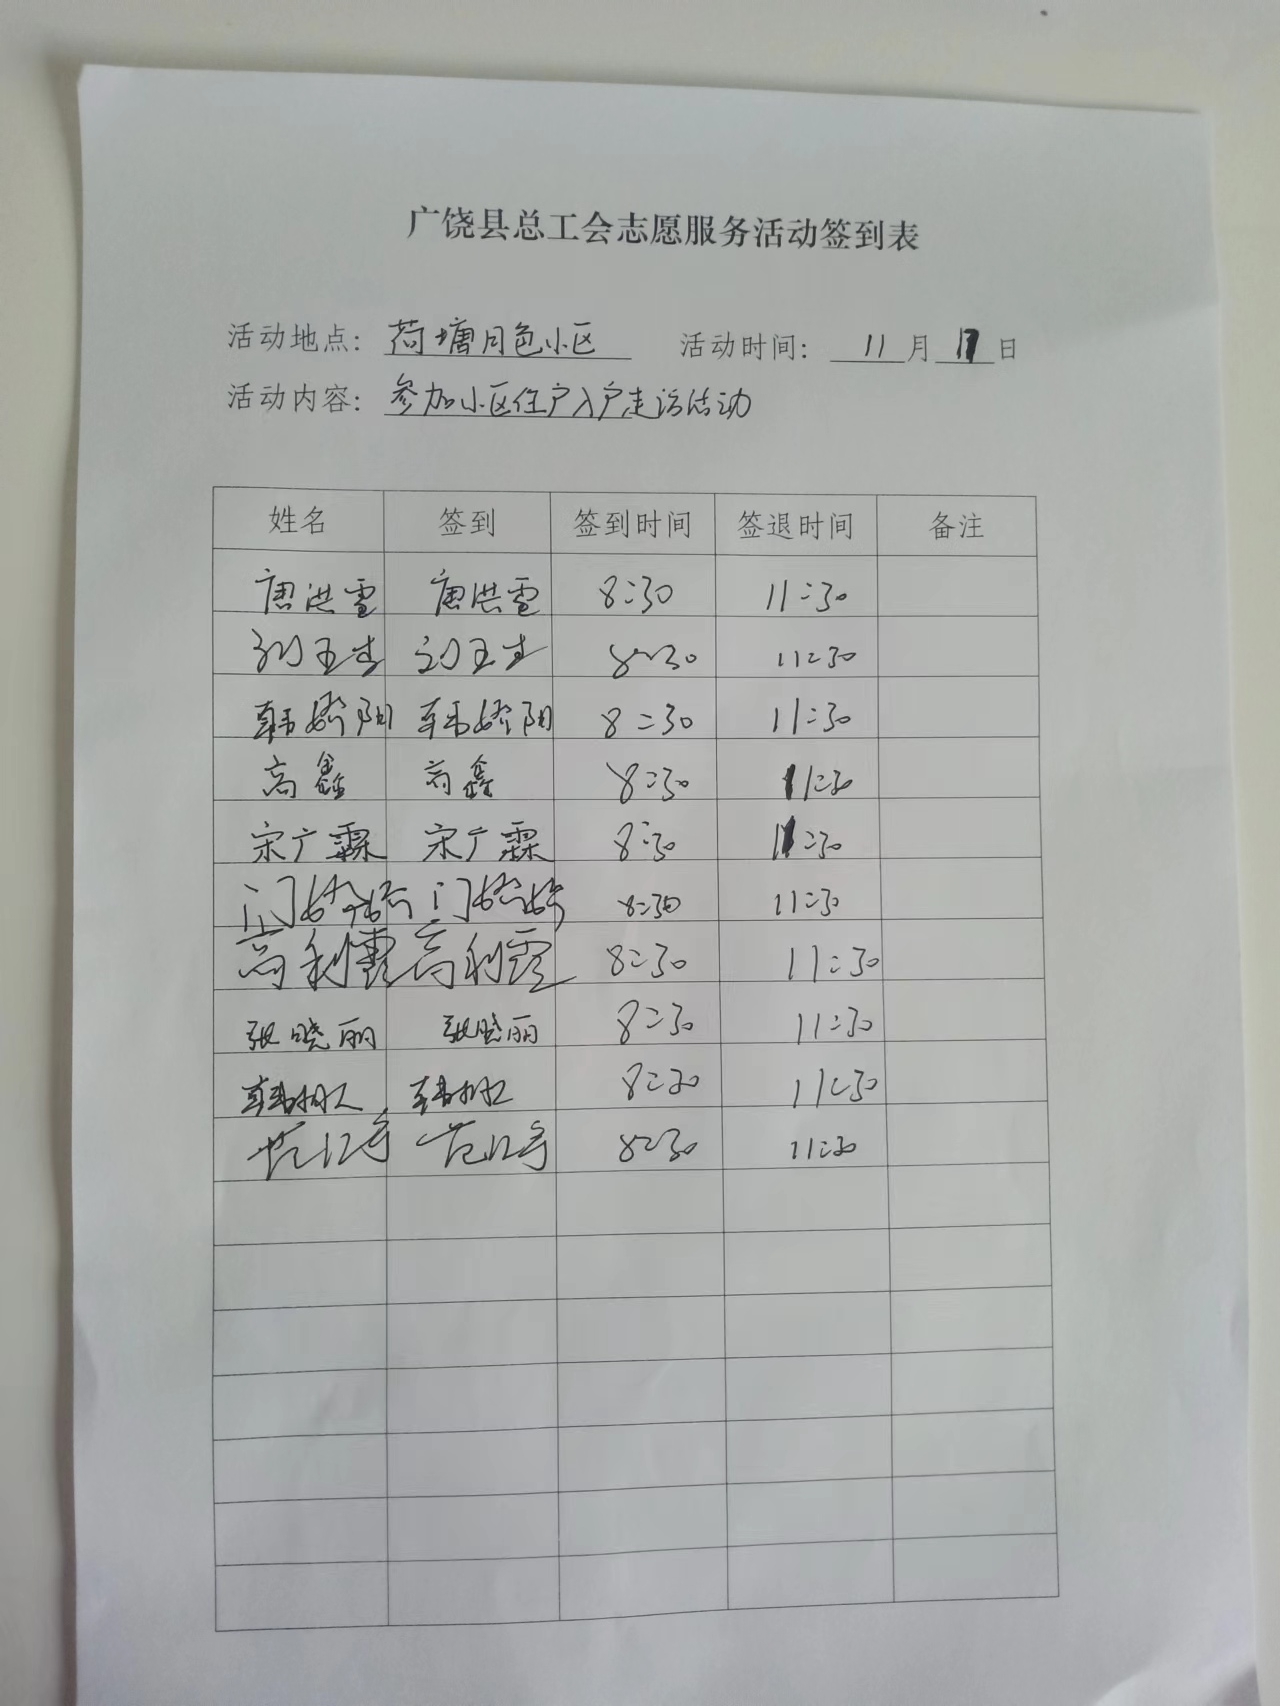 广饶县总工会志愿服务活动签到表
活动地点: 荷塘月色小区 活动时间: 11月17日
活动内容: 参加小区住户入户走访活动
姓名 签到 签到时间 签退时间 备注
唐洪雪 唐洪雪 8:30 11:30
刘玉生 刘玉生 8:30 11:30
韩娇阳 韩娇阳 8:30 11:30
高鑫 高鑫 8:30 11:30
宋广霖 宋广霖 8:30 11:30
8:30 11:30
高利霞 高利霞 8:30 11:30
张晓丽 张晓丽 8:30 11:30
8:30 11:30
8:30 11:30